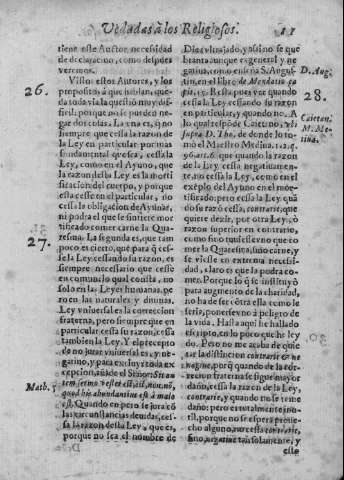 Vedadas à los Religiosos. 11
tiene este Auctor, necesidad
de declaracion, como despues
veremos.
Visto estos Autores, y los
proposito, à que hablan, que-
da toda vía la question muy dif-
ficil: porque no se puedẽ ne-
gar dos cosas. La una es, q̃ no
siempre que cessa la razon de
la Ley en particular por mas
fundamental q̃ sea, cessa la
Ley, como en el Ayuno, que
la razon desta Ley es la morti
ficacion del cuerpo, y porque
esta cesse en el particular, no
cessa la obligacion de Ayunar,
ni podra el que se sintiere mor
tificado comer carne la Qua-
resma. La segunda es, que tam
poco es cierto, que para q̃ ces-
se la Ley cessando su razon, es
siempre necessario que cesse
en comun: lo qual consta, no
solo en las Leyes humanas, pe
ro en las naturales y diuinas.
Ley vniuersal es la correccion
fraterna, pero siempre que en
particular cessa su razon, cessa
tambien la Ley. Y el precepto
de no jurar vniuersal es, y ne-
gatiuo, y para excluyr toda ex
cepcion, añade el Señor: Sit au
tem sermo vester est, est, non, nõ,
quod his abundantius est à malo
est. Quando en pero se jura cõ
las circunstancias deuidas, ces-
sa la razon desta Ley, que es,
porque no sea el nombre de
26.
27.
Math. 5
Dios vltrajado, y assi no se que
branta aunque es general y ne
gatiua, como enseña S. Augus
tin, en el libro de Mendatio ca
pit. 15. Resta pues ver quando
esta Ley cessando su razon
en particular, y quando no. A
lo qual respõde Caietano, Vbi
supra D. Tho. de donde lo to-
mò el Maestro Medina. 1. 2. q.
96. art. 6. que quando la razon
de la Ley cessa negatiuamen-
te, no cessa la Ley, como en el
exẽplo del Ayuno en el mor-
tificado: pero cessa la Ley quã
do su razõ cessa, contrariè, que
quiere dezir, por otra Ley, o
razon superior en contrario,
como si no tuuiesse vno que co
mer la Quaresma, sino carne, y
se viesse en extrema necessi-
dad, claro es que la podra co-
mer. Porque lo q̃ se instituyò
para augmento de la charidad,
no ha de ser cõtra ella como le
seria, poniendose a peligro de
la vida. Hasta aqui he hallado
escripto, en lo poco que he ley
do. Pero no me acabo de quie
tar la distincion contrariè & ne
gatiuè, porq̃ quando de la cor-
reccion fraterna se sigue mayor
daño, cessa la razon de la Ley,
contrariè, y quando no se teme
daño, pero es totalmente inu-
til, porque no se espera proue-
cho alguno, no cessa contrariè,
sino, negatiuè tan solamente, y
este
D. Aug.
28.
Caietan.
M. Me-
dina.